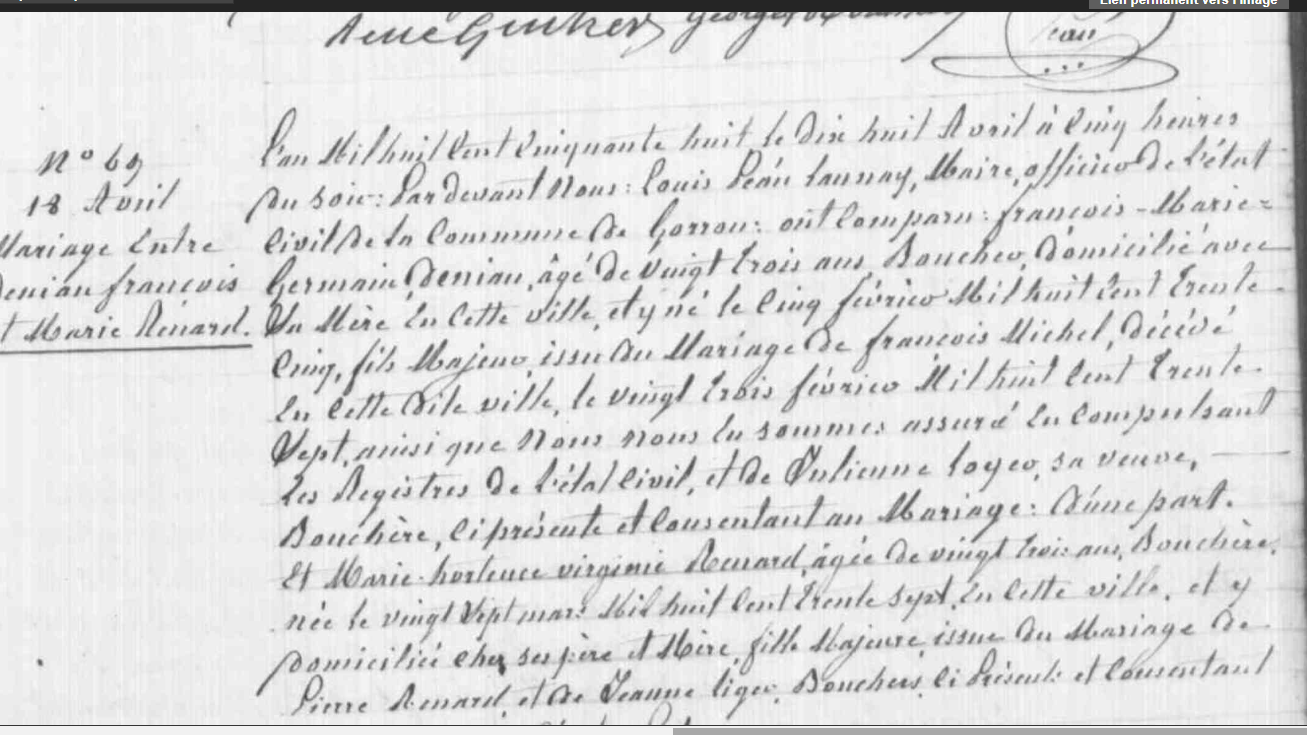 Lien permanent vers l'image
René
Jean
N° 69
18 Avril
Mariage Entre
Deniau françois
et Marie Renard.
L'an Mil huit Cent Cinquante huit le Dix huit Avril à Cinq heures
Du Soir: Par devant Nous: Louis Launay, Maire, officier de L'état
Civil De la Commune De Gorron: ont Comparu: françois-Marie-
Germain Deniau, âgé De Vingt trois ans, Boucher, Domicilié avec
Sa Mère En Cette Ville, et y né le Cinq février Mil huit Cent Trente
Cinq, fils Majeur, issu Du Mariage De françois Michel, Décédé
En Cette Dite ville, le vingt trois février Mil huit Cent Trente
Sept, ainsi que Nous nous En sommes assuré En Compulsant
Les Registres De L'état Civil, et De Julienne Loyer, sa veuve,
Bouchère, Ci présente et Consentant au Mariage: D'une part.
Et Marie hortence virginie Renard, âgée De vingt trois ans, Bouchère,
née le vingt Sept mars Mil huit Cent Trente sept, En Cette ville, et y
Domiciliée chez ses père et Mère, fille Majeure, issue Du Mariage De
Pierre Renard, et De Jeanne Bouchers, Ci Présents et Consentant